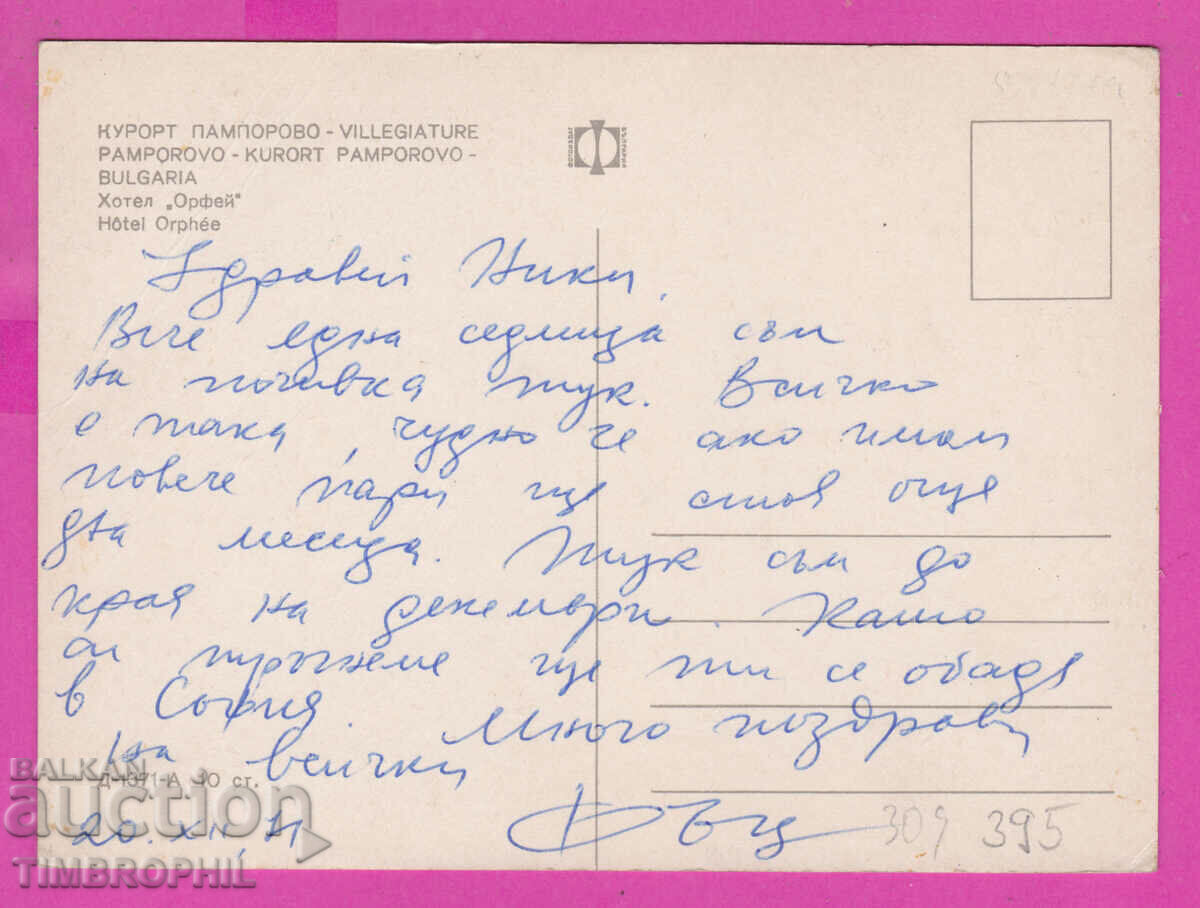 КУРОРТ ПАМПОРОВО - VILLEGIATURE
PAMPOROVO - KURORT PAMPOROVO -
BULGARIA
Хотел „Орфей"
Hôtel Orphée
ФОТОИЗДАТ
БЪЛГАРИЯ
Здравей Ники,
Вече една седмица съм
на почивка тук. Всичко
е така чудно че ако имам
повече пари ще стоя още
два месеца. Тук съм до
края на декември. Като
си тръгнеме ще ти се обадя
в София. Много поздрави
на всички
Д-1371-А 10 ст.
20.XII.71
309 395
BALKAN
auction
TIMBROPHIL